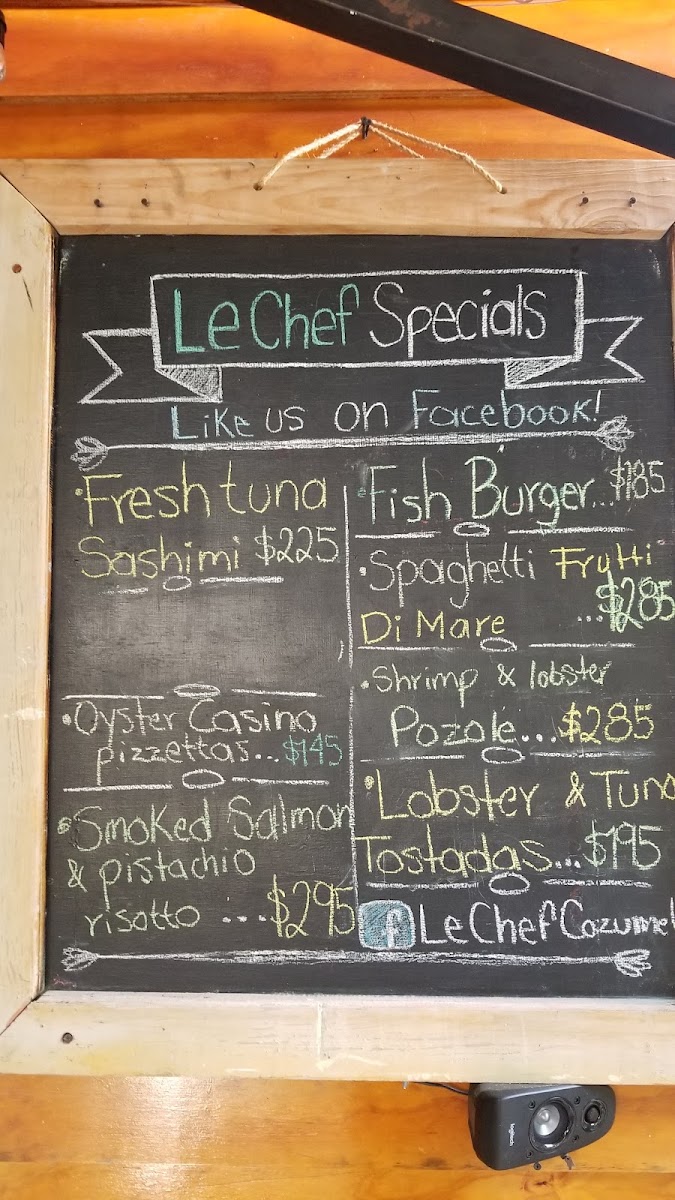 Le Chef Specials
Like us on Facebook!
•Fresh tuna
Sashimi $225
•Oyster Casino
pizzettas...$145
•Smoked Salmon
& pistachio
risotto ...$295
•Fish Burger...$185
•Spaghetti Frutti
Di Mare ...$285
•Shrimp & lobster
Pozole...$285
•Lobster & Tuna
Tostadas...$195
f Le Chef Cozumel
logitech